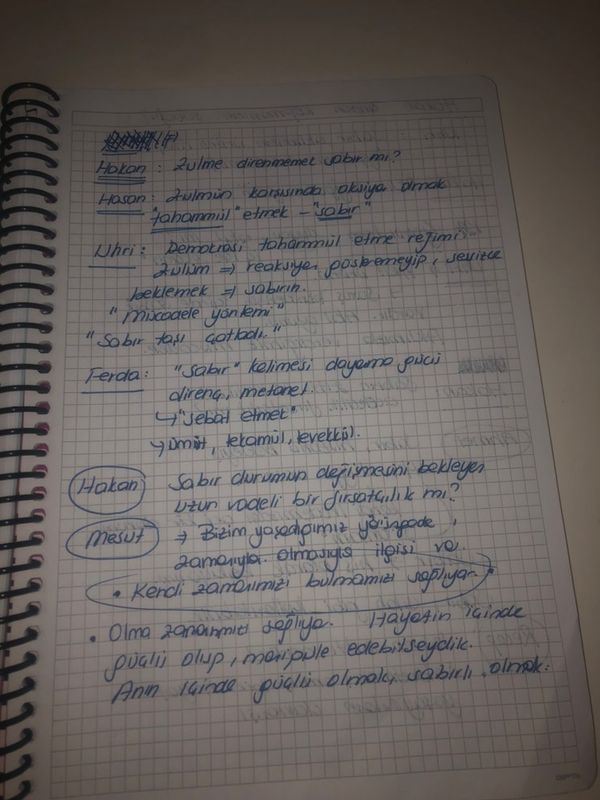 Hakan : Zulme direnmemek sabır mı?
Hasan : Zulmün karşısında aksiya olmak
"tahammül" etmek - "sabır"
Uhri : Demokrasi tahammül etme rejimi
Zulüm => reaksiyon göstermeyip, sessizce
beklemek => sabırın.
"Mücadele yöntemi"
"Sabır taşı çatladı."
Ferda : "Sabır" kelimesi dayanma gücü
direnç, metanet.
↳ "sebat etmek"
↳ ümit, tekamül, tevekkül.
Hakan Sabır durumun değişmesini bekleyen
uzun vadeli bir fırsatçılık mı?
Mesut => Bizim yaşadığımız
zamanıyla olmasıyla ilgisi var.
• Kendi zamanımızı bulmamızı sağlıyor.
• Olma zamanımızı sağlıyor. Hayatın içinde
güçlü olup, manipüle edebilseydik.
Anın içinde güçlü olmak, sabırlı olmak.